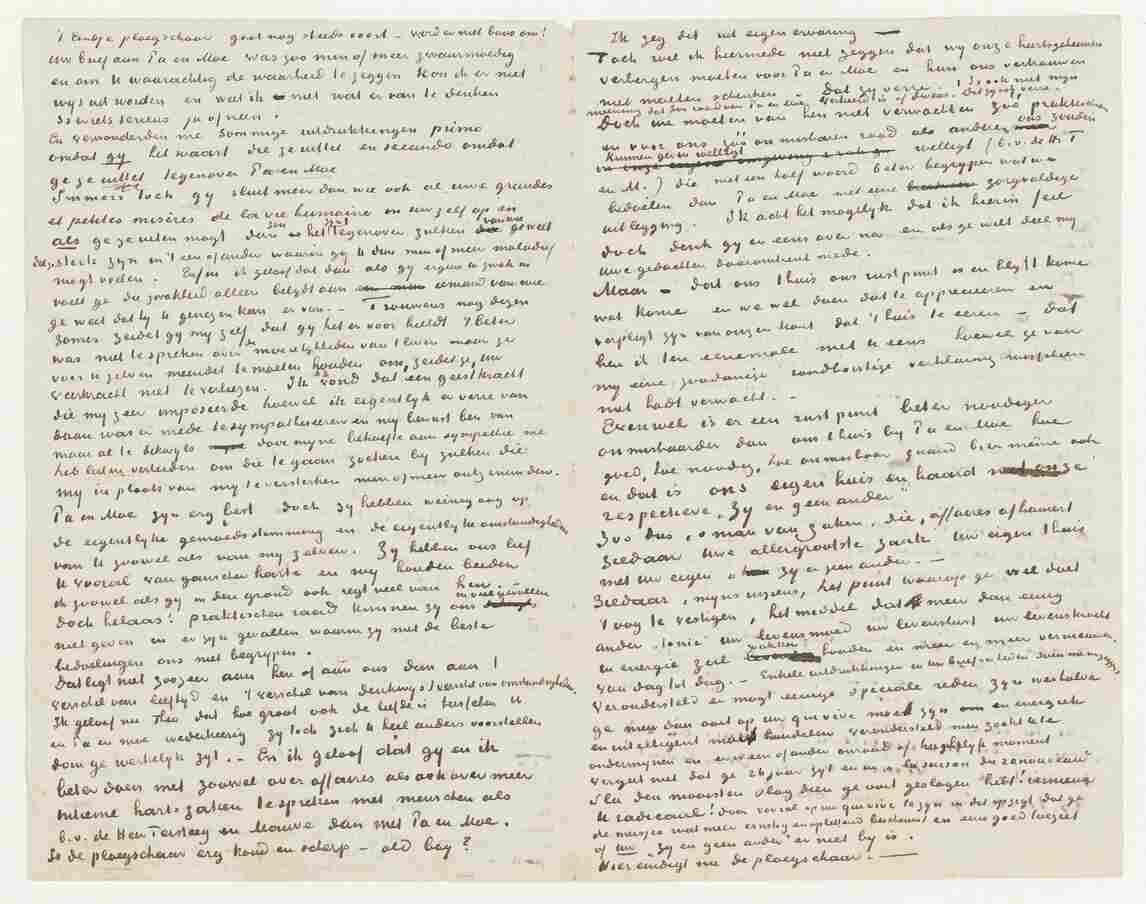 't Eindje ploegschaar gaat nog steeds voort – word er niet boos om!
Uw brief aan Pa en Moe was zoo min of meer zwaarmoedig
en om U waarachtig de waarheid te zeggen kon ik er niet
wijs uit worden en weet ik niet wat er van te denken
Is er iets serieus ja of neen.
En verwonderden me sommige uitdrukkingen primo
omdat gij het waart die ze uittet en secundo omdat
ge ze uittet tegenover Pa en Moe
Immers toch gij sluit meer dan wie ook al uwe grandes
et petites misères de la vie humaine in uw zelf op en
als ge ze uiten mogt dan zou het zijn tegenover zulken van wie ge weet
dat ze sterk zijn in 't een of ander waarin gij U dan min of meer maladief
mogt voelen. Enfin ik geloof dat dan als gij ergens u zwak in
voelt ge die zwakheid alleen belydt aan iemand van wie
ge weet dat hij U genezen kan er van. – Trouwens nog dezen
zomer zeidet gij mij zelf dat gij het er voor hieldt 't beter
was niet te spreken over de moeielijkheden van 't leven maar ze
voor u te geven meendet te moeten houden om, zeidet ge, uw
veerkracht niet te verliezen. Ik vond dat een geestkracht
die mij zeer imposeerde hoewel ik eigentlyk er verre van
daan was er mede te sympathiseeren en mij bewust ben van
maar al te dikwijls door mijne behoefte aan sympathie me
heb laten verleiden om die te gaan zoeken bij zulken die
mij in plaats van mij te versterken min of meer ontzenuwden.
Pa en Moe zijn erg best doch zij hebben weinig oog op
de eigentlyke gemoedsstemming en de eigentlyke omstandigheden
van U zoowel als van mij zelven. Zij hebben ons lief
U vooral van ganscher harte en wij houden beiden
ik zoowel als gij in den grond ook regt veel van hen.
Doch helaas! praktischen raad kunnen zij ons in veel gevallen
niet geven en er zijn gevallen waarin zij met de beste
bedoelingen ons niet begrijpen.
Dat ligt niet zoozeer aan hen of aan ons dan aan 't
verschil van leeftyd en 't verschil van denkwijs & verschil van omstandigheden.
Ik geloof nu Theo dat hoe groot ook de liefde is tusschen U
en Pa en Moe wederkeerig zij toch zich U heel anders voorstellen
dan ge werkelijk zijt. – En ik geloof dat gij en ik
beter doen met zoowel over affaires als ook over meer
intieme hartszaken te spreken met menschen als
b.v. de Heer Tersteeg en Mauve dan met Pa en Moe.
Is de ploegschaar erg koud en scherp – old boy?
Ik zeg dit uit eigen ervaring —
Toch wil ik hiermede niet zeggen dat wij onze hartsgeheimen
verbergen moeten voor Pa en Moe en hun ons vertrouwen
niet moeten schenken. Dat zij verre! Is ook niet mijn
meening dat den raad van Pa en Moe verkeerd is of dwaas. Dat zij ook verre!
Doch we moeten van hen niet verwachten zoo praktischen
en voor ons zóó onmisbaren raad als anderen ons zouden
kunnen geven wellicht
wellegt (b.v. de Hr T
en M.) die met een half woord beter begrijpen wat we
bedoelen dan Pa en Moe met eene zorgvuldige
uitlegging. Ik acht het mogelijk dat ik hierin feil
doch denk gij er eens over na en als ge wilt deel mij
uwe gedachten daaromtrent mede.
Maar – dat ons t'huis ons rustpunt is en blijft kome
wat kome en we wel doen dat te appreciëeren en
verpligt zijn van onzen kant dat 't huis te eeren – dat
ben ik ten eenenmale met U eens hoewel ge van
mij eene zoodanige rondborstige verklaring misschien
niet hadt verwacht. –
Evenwel is er een rustpunt beter noodiger
onmisbaarder dan ons t'huis bij Pa en Moe hoe
goed, hoe noodig, hoe onmisbaar quand bien même ook
en dat is ons eigen huis en haard
respectieve „zij en geen ander"
Zoo dus, o man van zaken, die „affaires afhaart
Ziedaar uwe allergrootste zaak Uw eigen t'huis
met Uw eigen zij en geen ander. –
Ziedaar, mijns inziens, het punt waarop ge wel doet
't oog te vestigen, het middel dat meer dan eenig
ander „tonic" uw levensmoed uw levenslust uw levenskracht
en energie zal wakker houden en meer en meer vernieuwen
van dag tot dag. – Enkele uitdrukkingen in uw brief en leiden doen mij zeggen,
veronderstel er mogt eenige speciale reden zijn weshalve
ge meer dan ooit op uw qui vive moet zijn en energiek
en intelligent moet handelen veronderstel men zocht U te
ondermijnen en er ware of ander onraad of hagchelijk moment
vergeet niet dat ge 24 jaar zijt en en is la saison du renouveau
Sla den mooisten slag dien ge ooit geslagen hebt! vernieuw
U radicaal! door vooral op uw qui vive te zyn in dat opzigt, dat ge
de meisjes wat meer ernstig en oplettend beschouwt en eens goed toeziet
of uw „zij en geen ander" er niet bij is.
Hier eindigt nu de ploegschaar. —